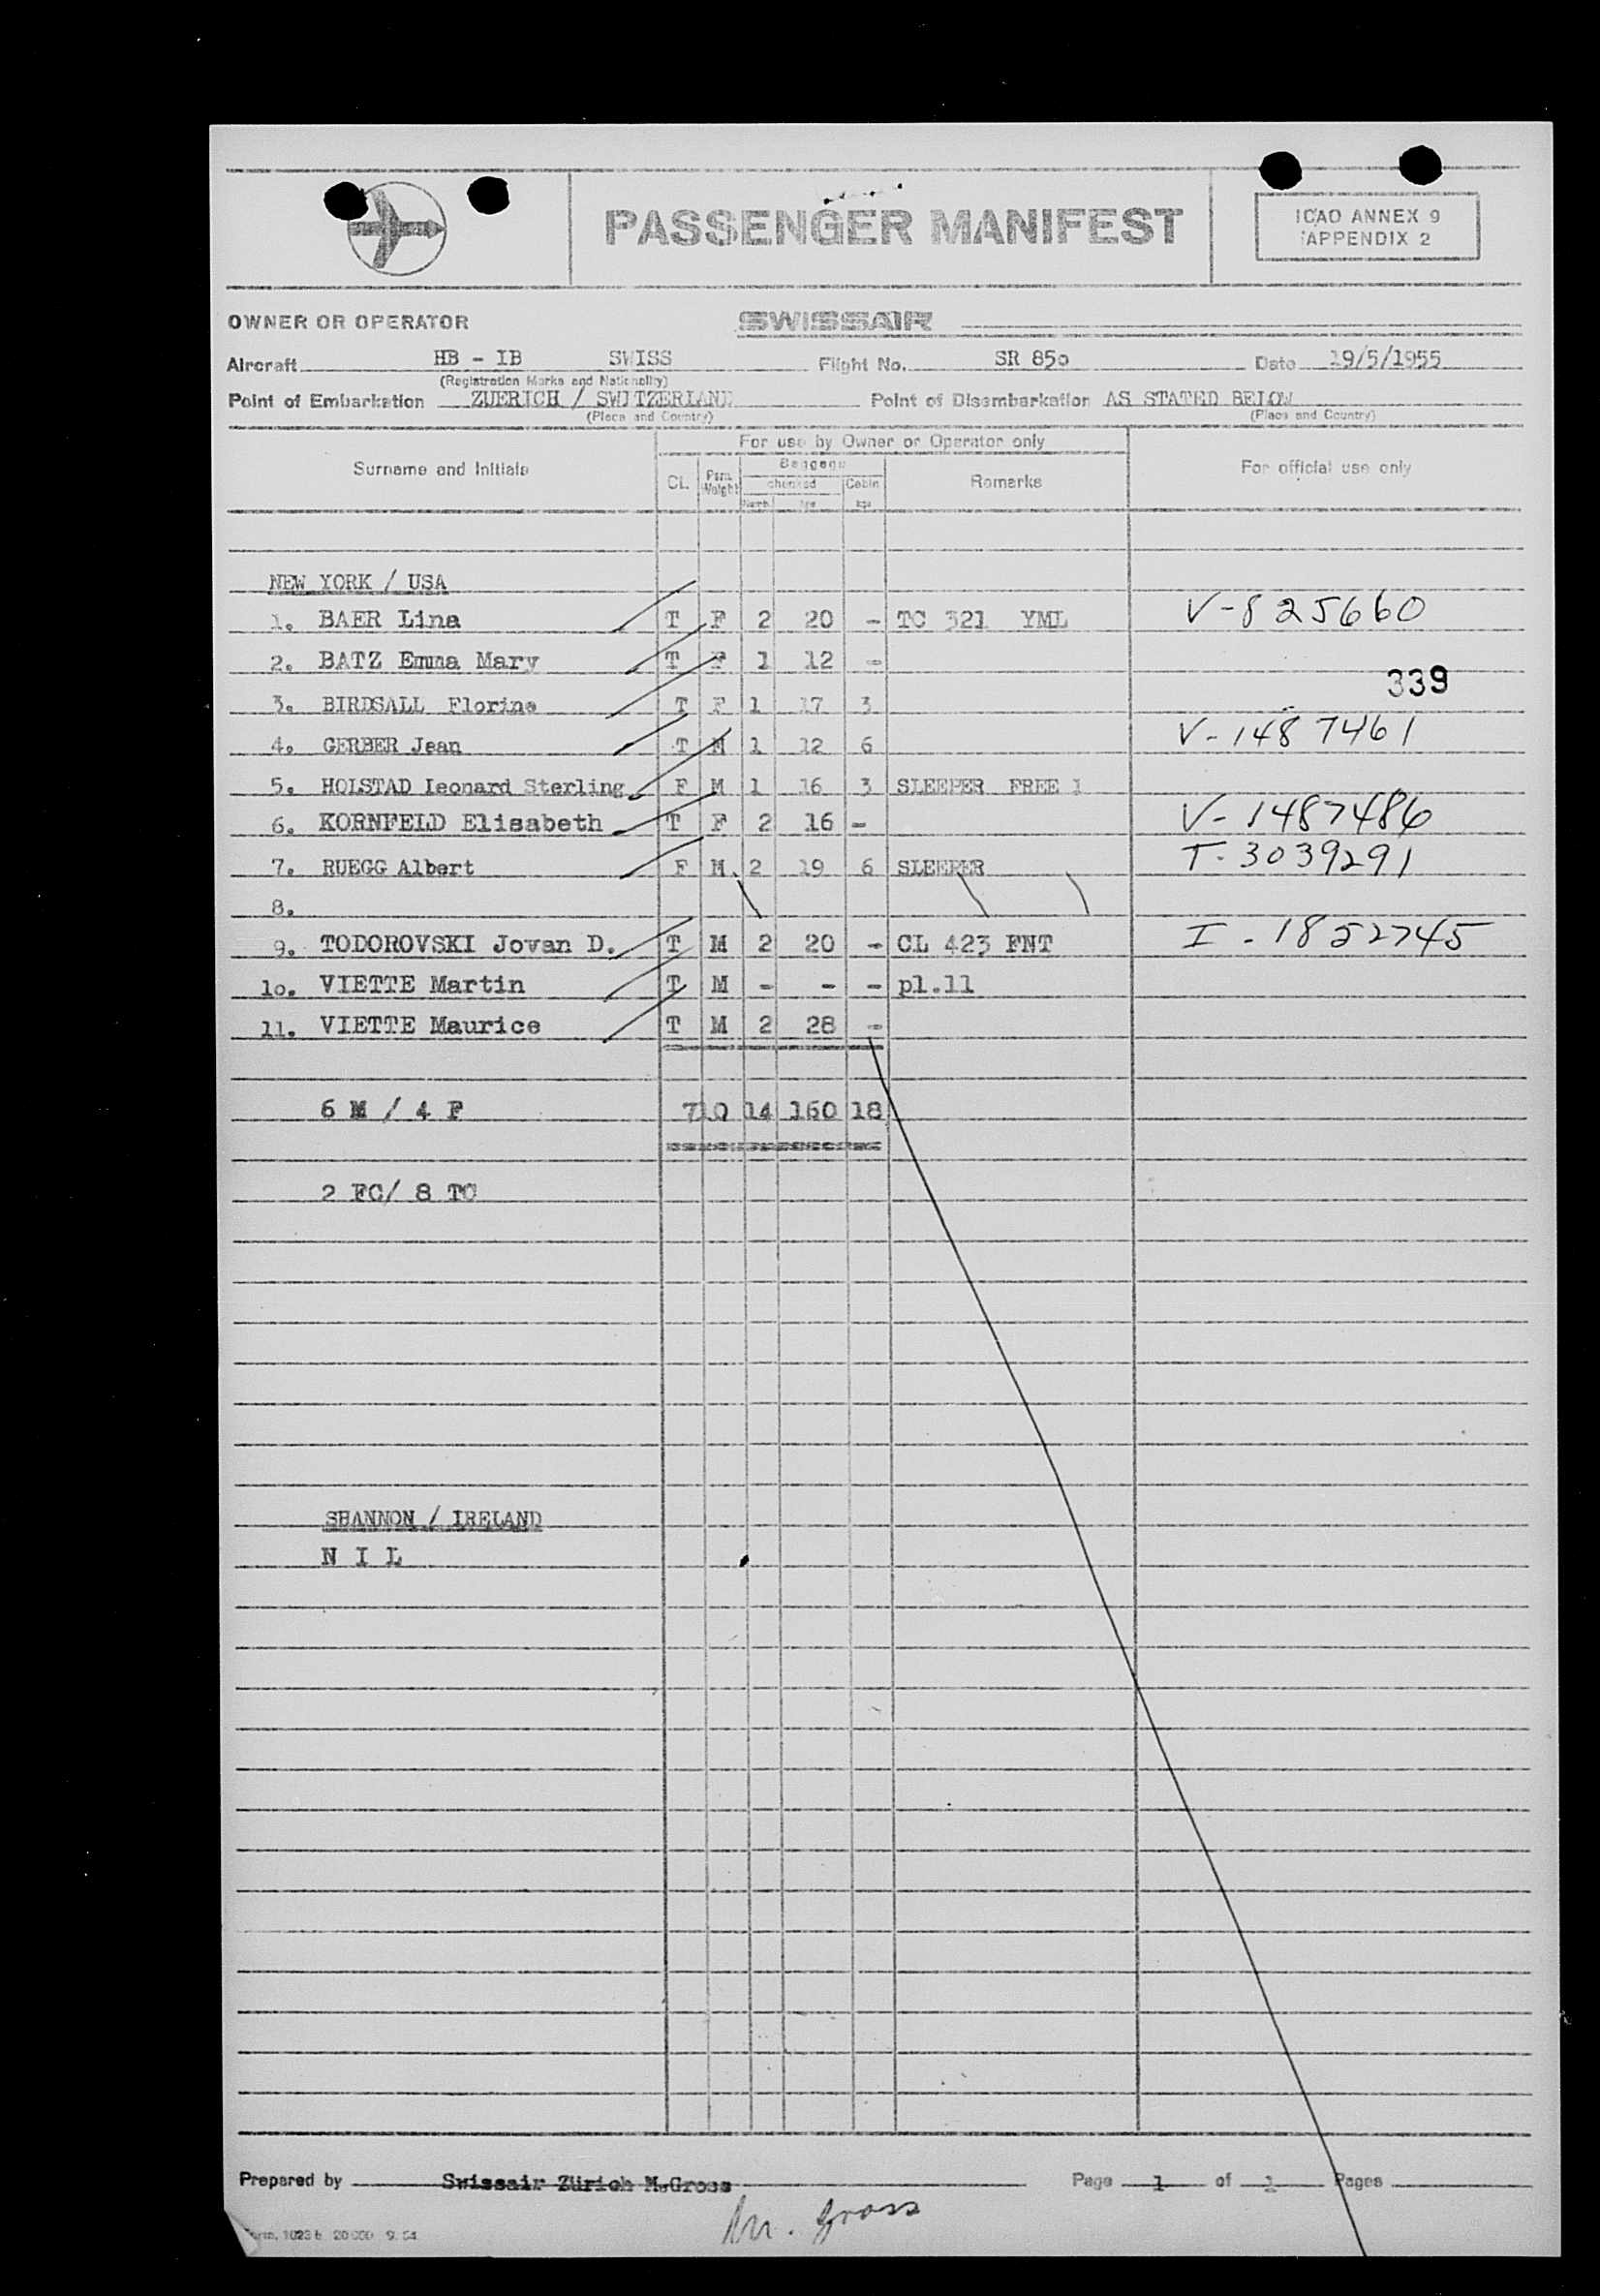 PASSENGER MANIFEST
ICAO ANNEX 9
APPENDIX 2
OWNER OR OPERATOR SWISSAIR
Aircraft HB - IB SWISS Flight No. SR 850 Date 19/5/1955
(Registration Marks and Nationality)
Point of Embarkation ZUERICH / SWITZERLAND Point of Disembarkation AS STATED BELOW
(Place and Country) (Place and Country)
For use by Owner or Operator only
Surname and Initials CL. Pers. Weight Baggage checked Cabin Remarks For official use only
Numb. kgs kgs
NEW YORK / USA
1. BAER Lina T F 2 20 - TC 321 YML V-825660
2. BATZ Emma Mary T F 1 12 -
339
3. BIRDSALL Florine T F 1 17 3
4. GERBER Jean T M 1 12 6 V-1487461
5. HOLSTAD Leonard Sterling F M 1 16 3 SLEEPER FREE 1
6. KORNFELD Elisabeth T F 2 16 - V-1487486
7. RUEGG Albert F M 2 19 6 SLEEPER T-3039291
8.
9. TODOROVSKI Jovan D. T M 2 20 - CL 423 FNT I-1852745
10. VIETTE Martin T M - - - pl.11
11. VIETTE Maurice T M 2 28 -
6 M / 4 F 710 14 160 18
2 FC/ 8 TC
SHANNON / IRELAND
N I L
Prepared by Swissair Zürich M.Gross Page 1 of 1 Pages
M. Gross
Form. 1023 b 20 000 9. 54